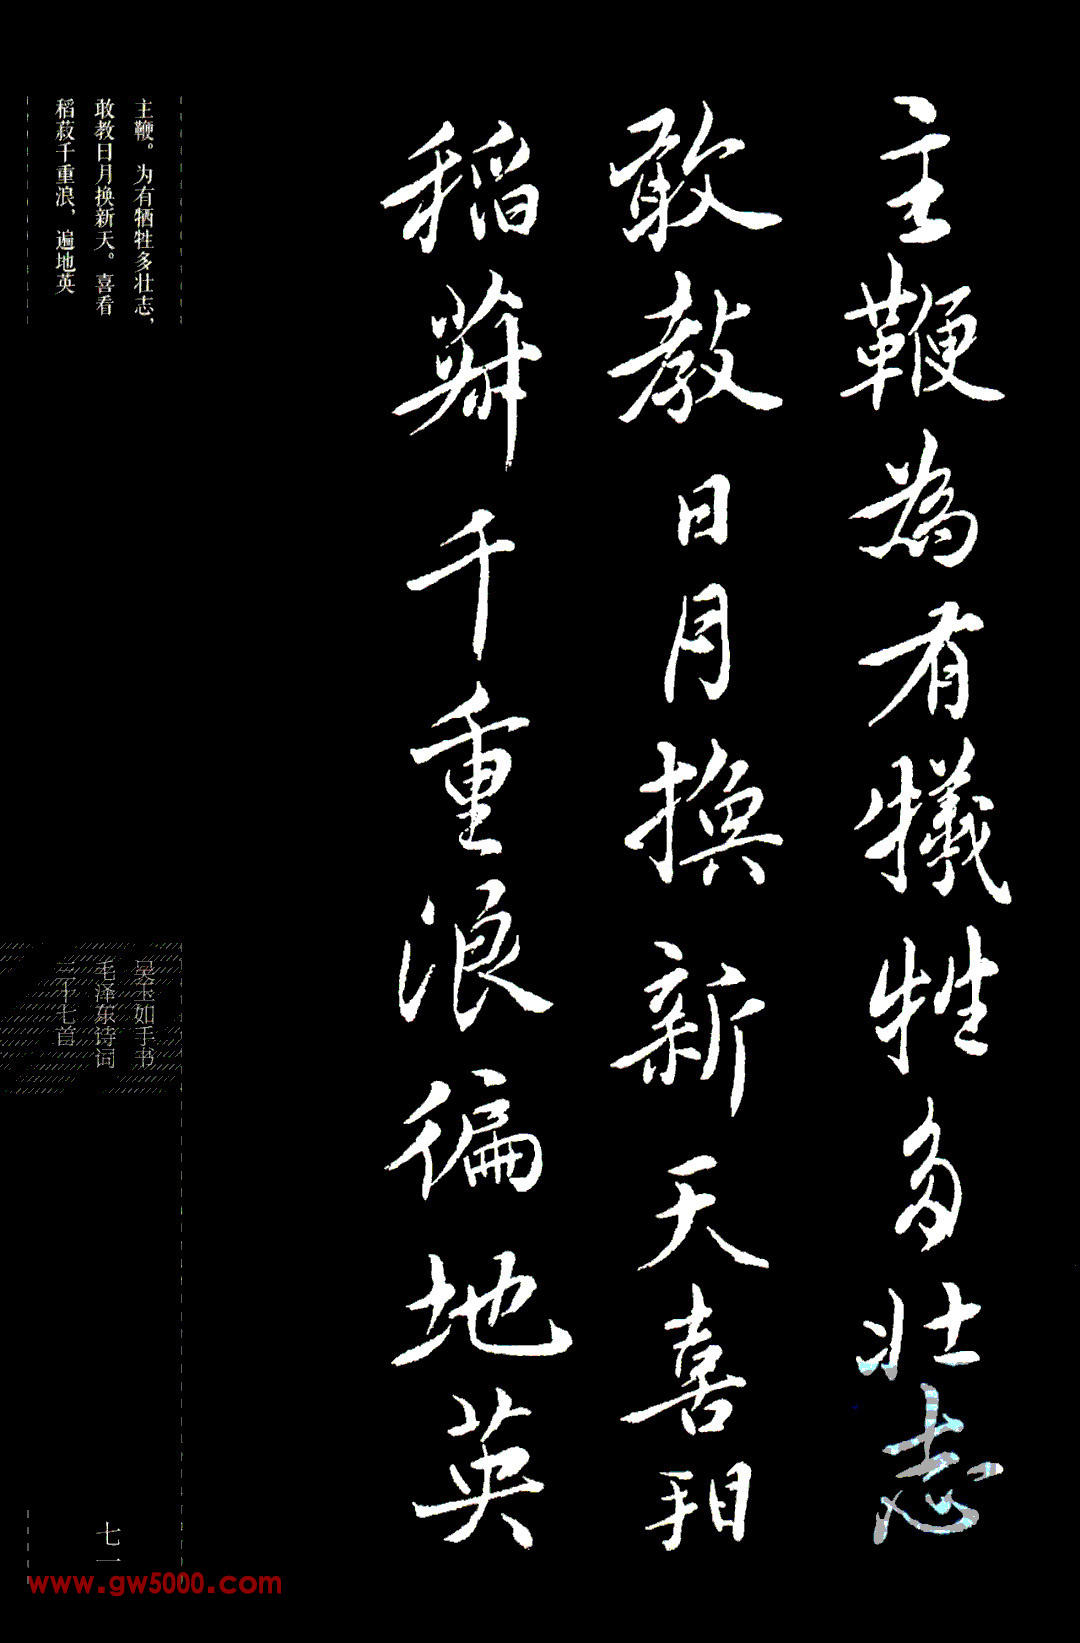 主鞭為有犧牲多壮志
敢教日月换新天喜看
稻菽千重浪徧地英
主鞭。为有牺牲多壮志，
敢教日月换新天。喜看
稻菽千重浪，遍地英
吴玉如手书
毛泽东诗词
三十七首
七一
www.gw5000.com